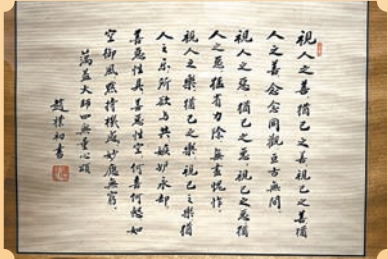 視人之善猶己之善視己之善猶
人之善念念同觀亘古無間
視人之惡猶己之惡視己之惡猶
人之惡猛省力除無盡愧怍
視人之樂猶己之樂視己之樂猶
人之樂所欲與共嫉妒永卻
善惡性具善惡性空何喜何慼如
空御風持處妙應無窮
蕅益大師四無量心頌
趙樸初書